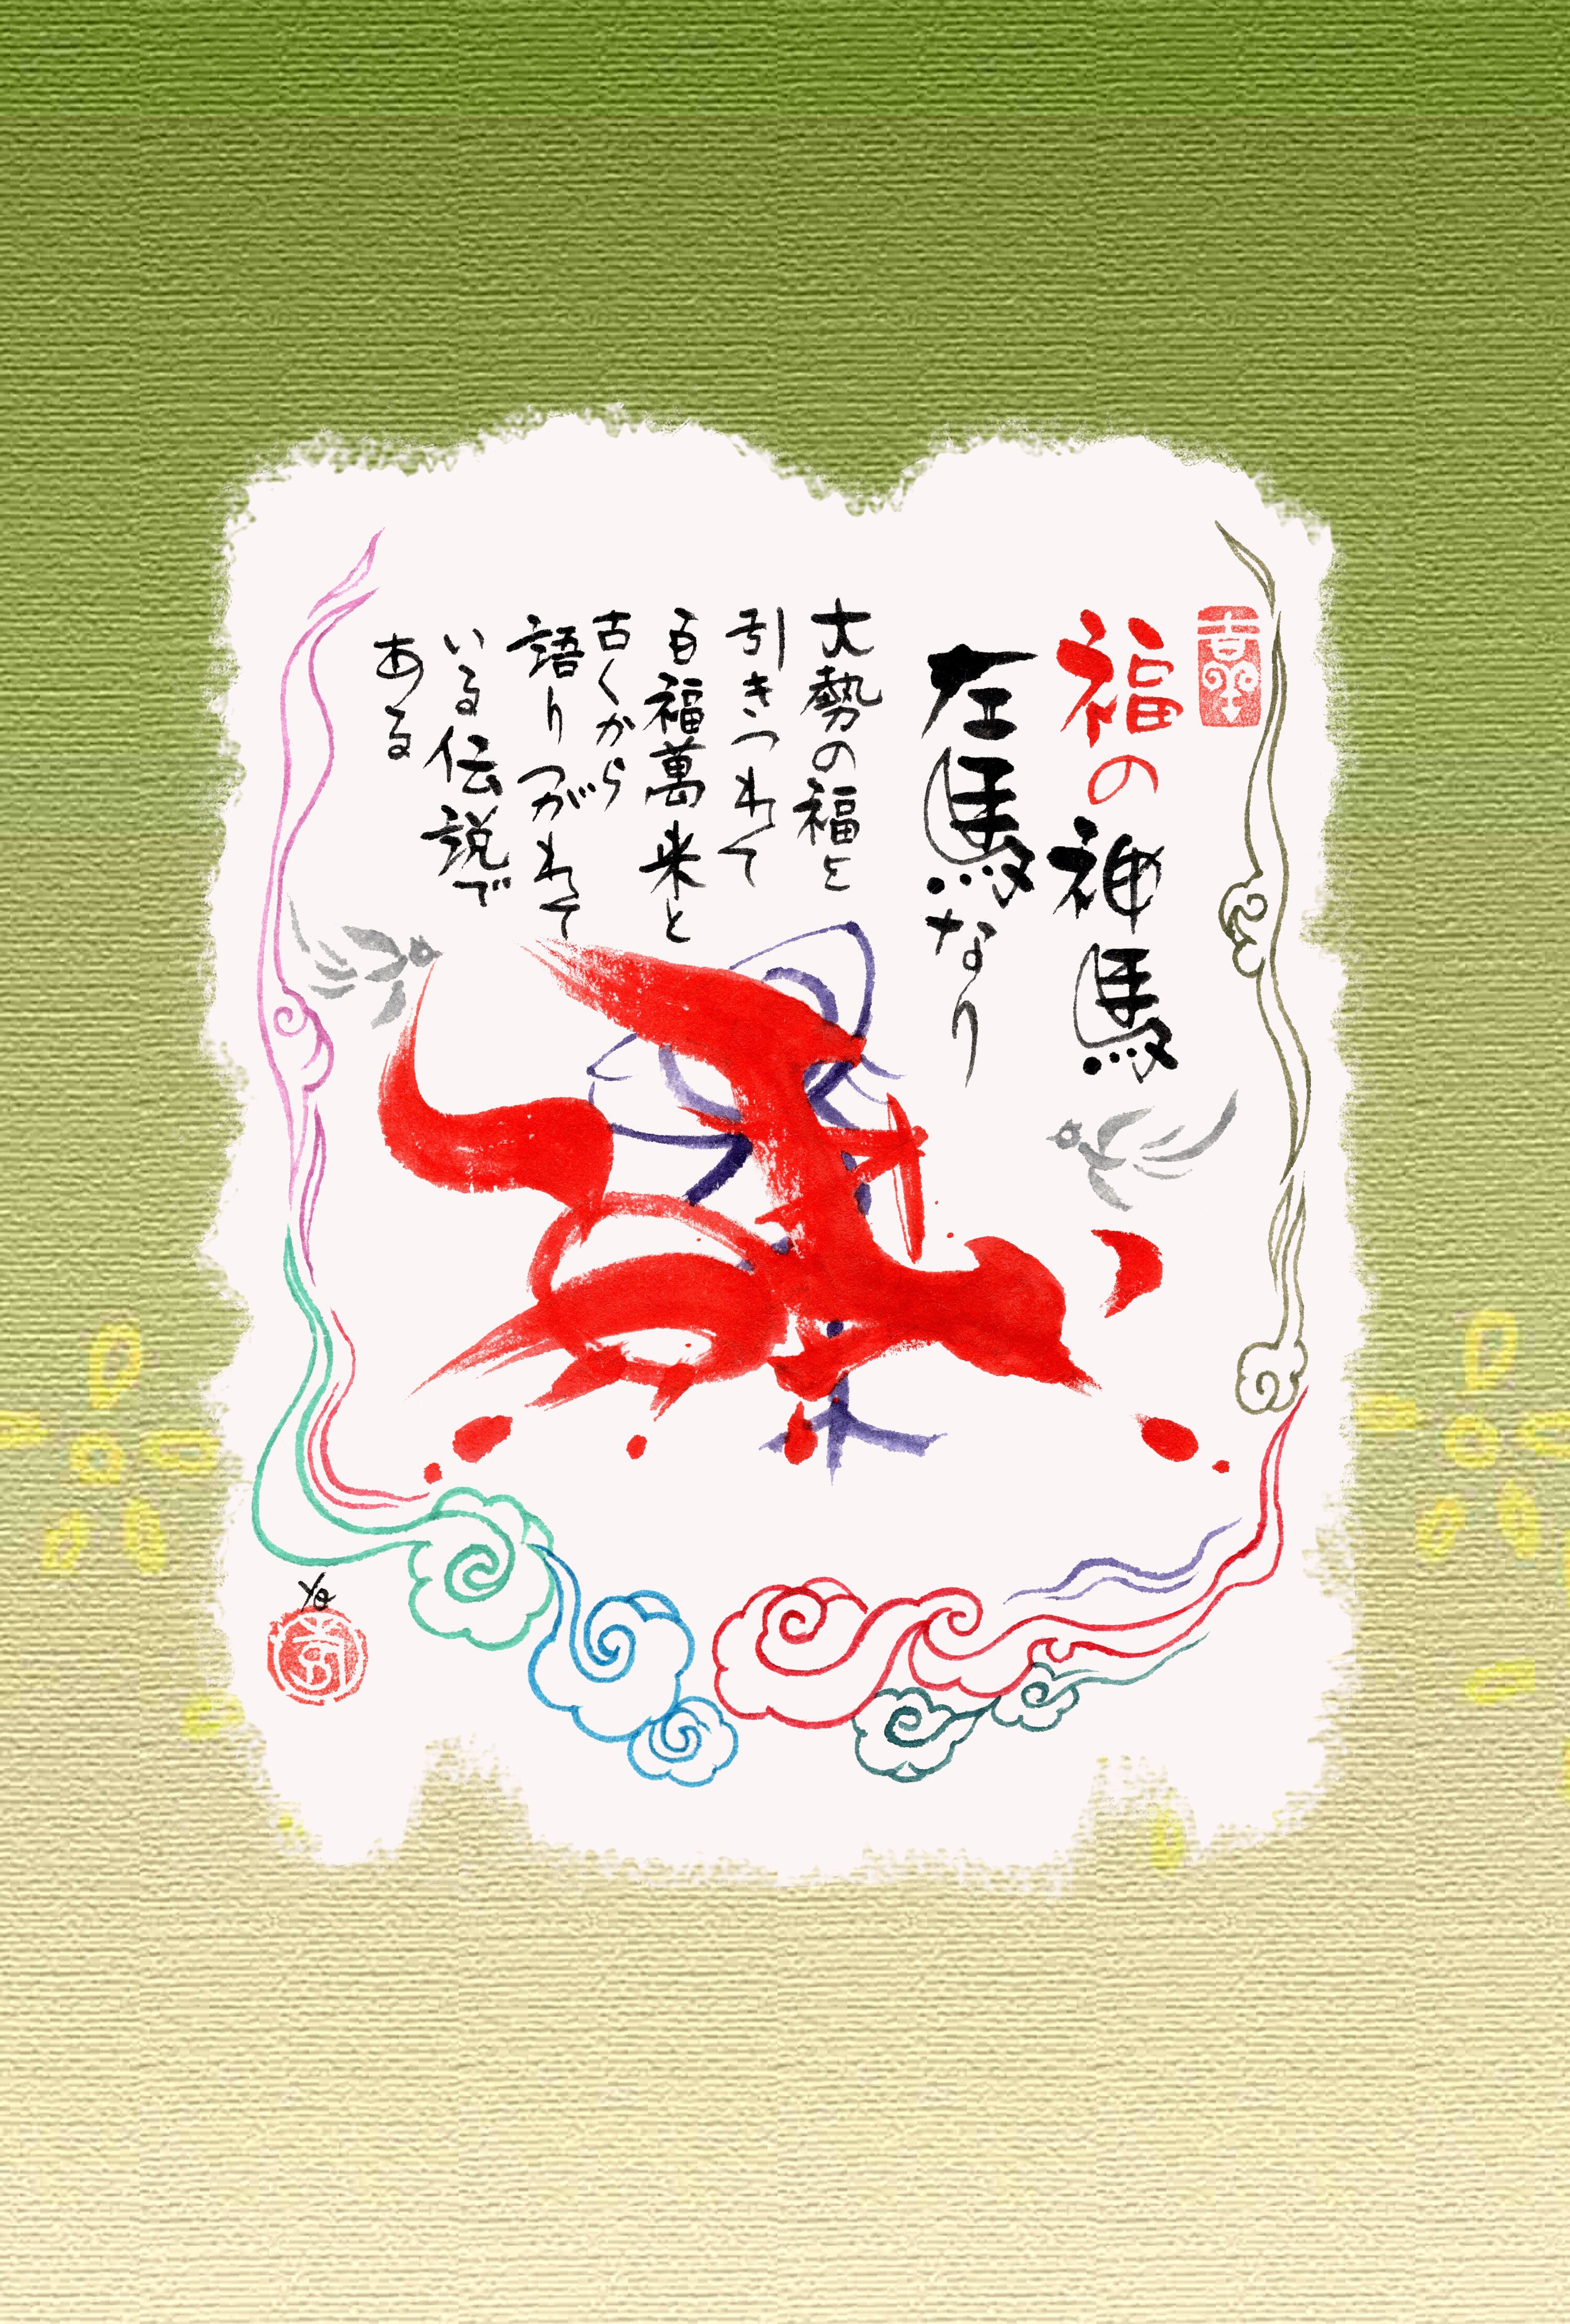 福の神馬
左馬なり
大勢の福を
引きつれて
百福萬来と
古くから
語りつがれて
いる伝説で
ある
Yo